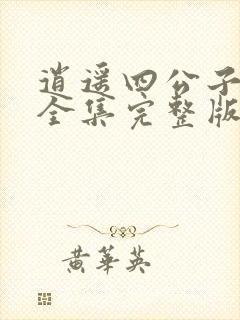 逍遥四公子
全集完整版
黄华英